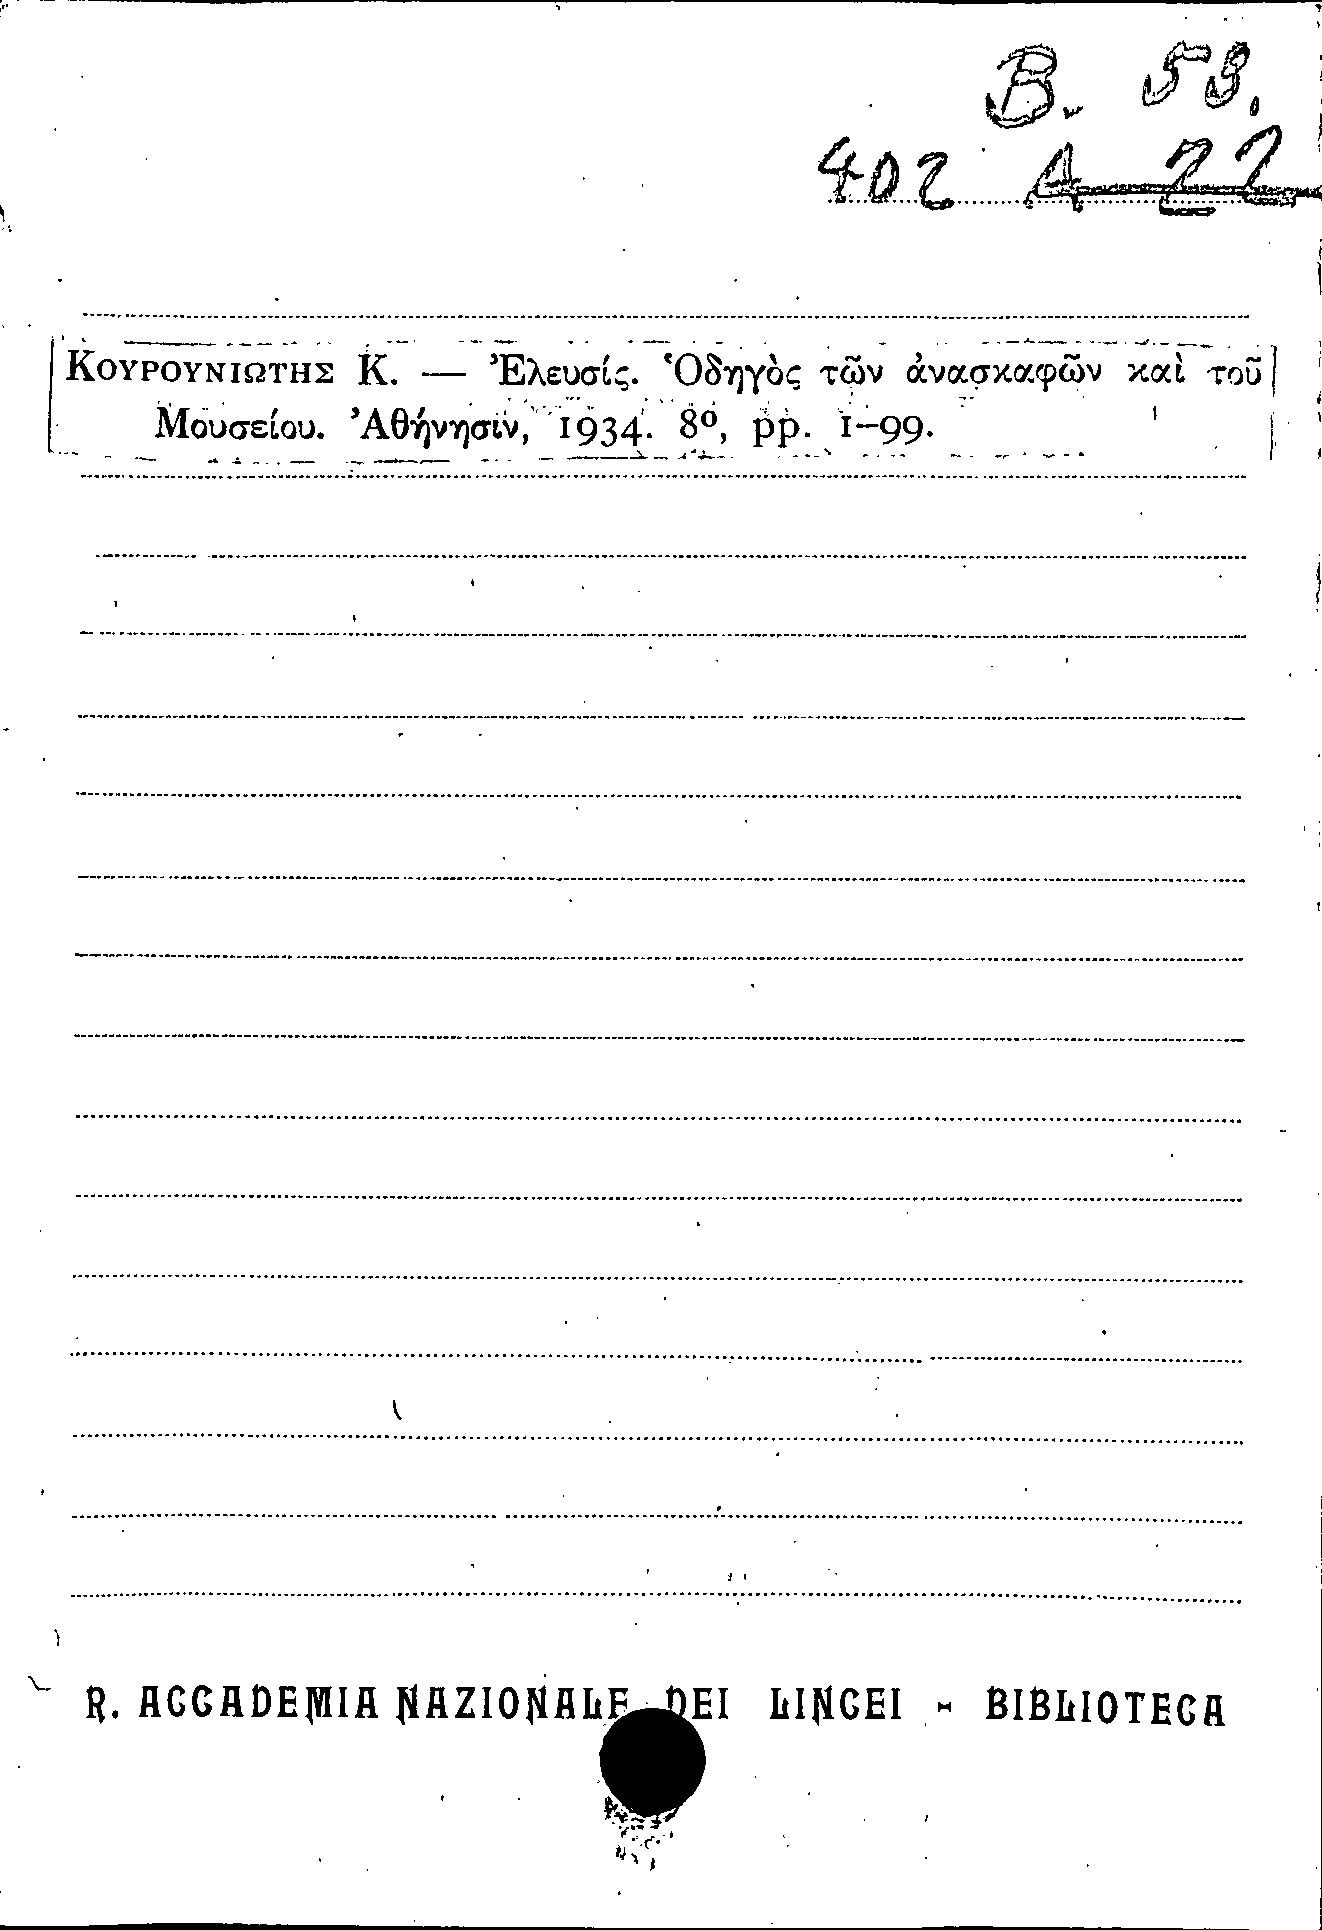 B. 53.
402 A 22
ΚΟΥΡΟΥΝΙΩΤΗΣ Κ. — Ἐλευσίς. Ὁδηγὸς τῶν ἀνασκαφῶν καὶ τοῦ
Μουσείου. Ἀθήνησιν, 1934. 8º, pp. 1-99.
R. ACCADEMIA NAZIONALE DEI LINCEI - BIBLIOTECA